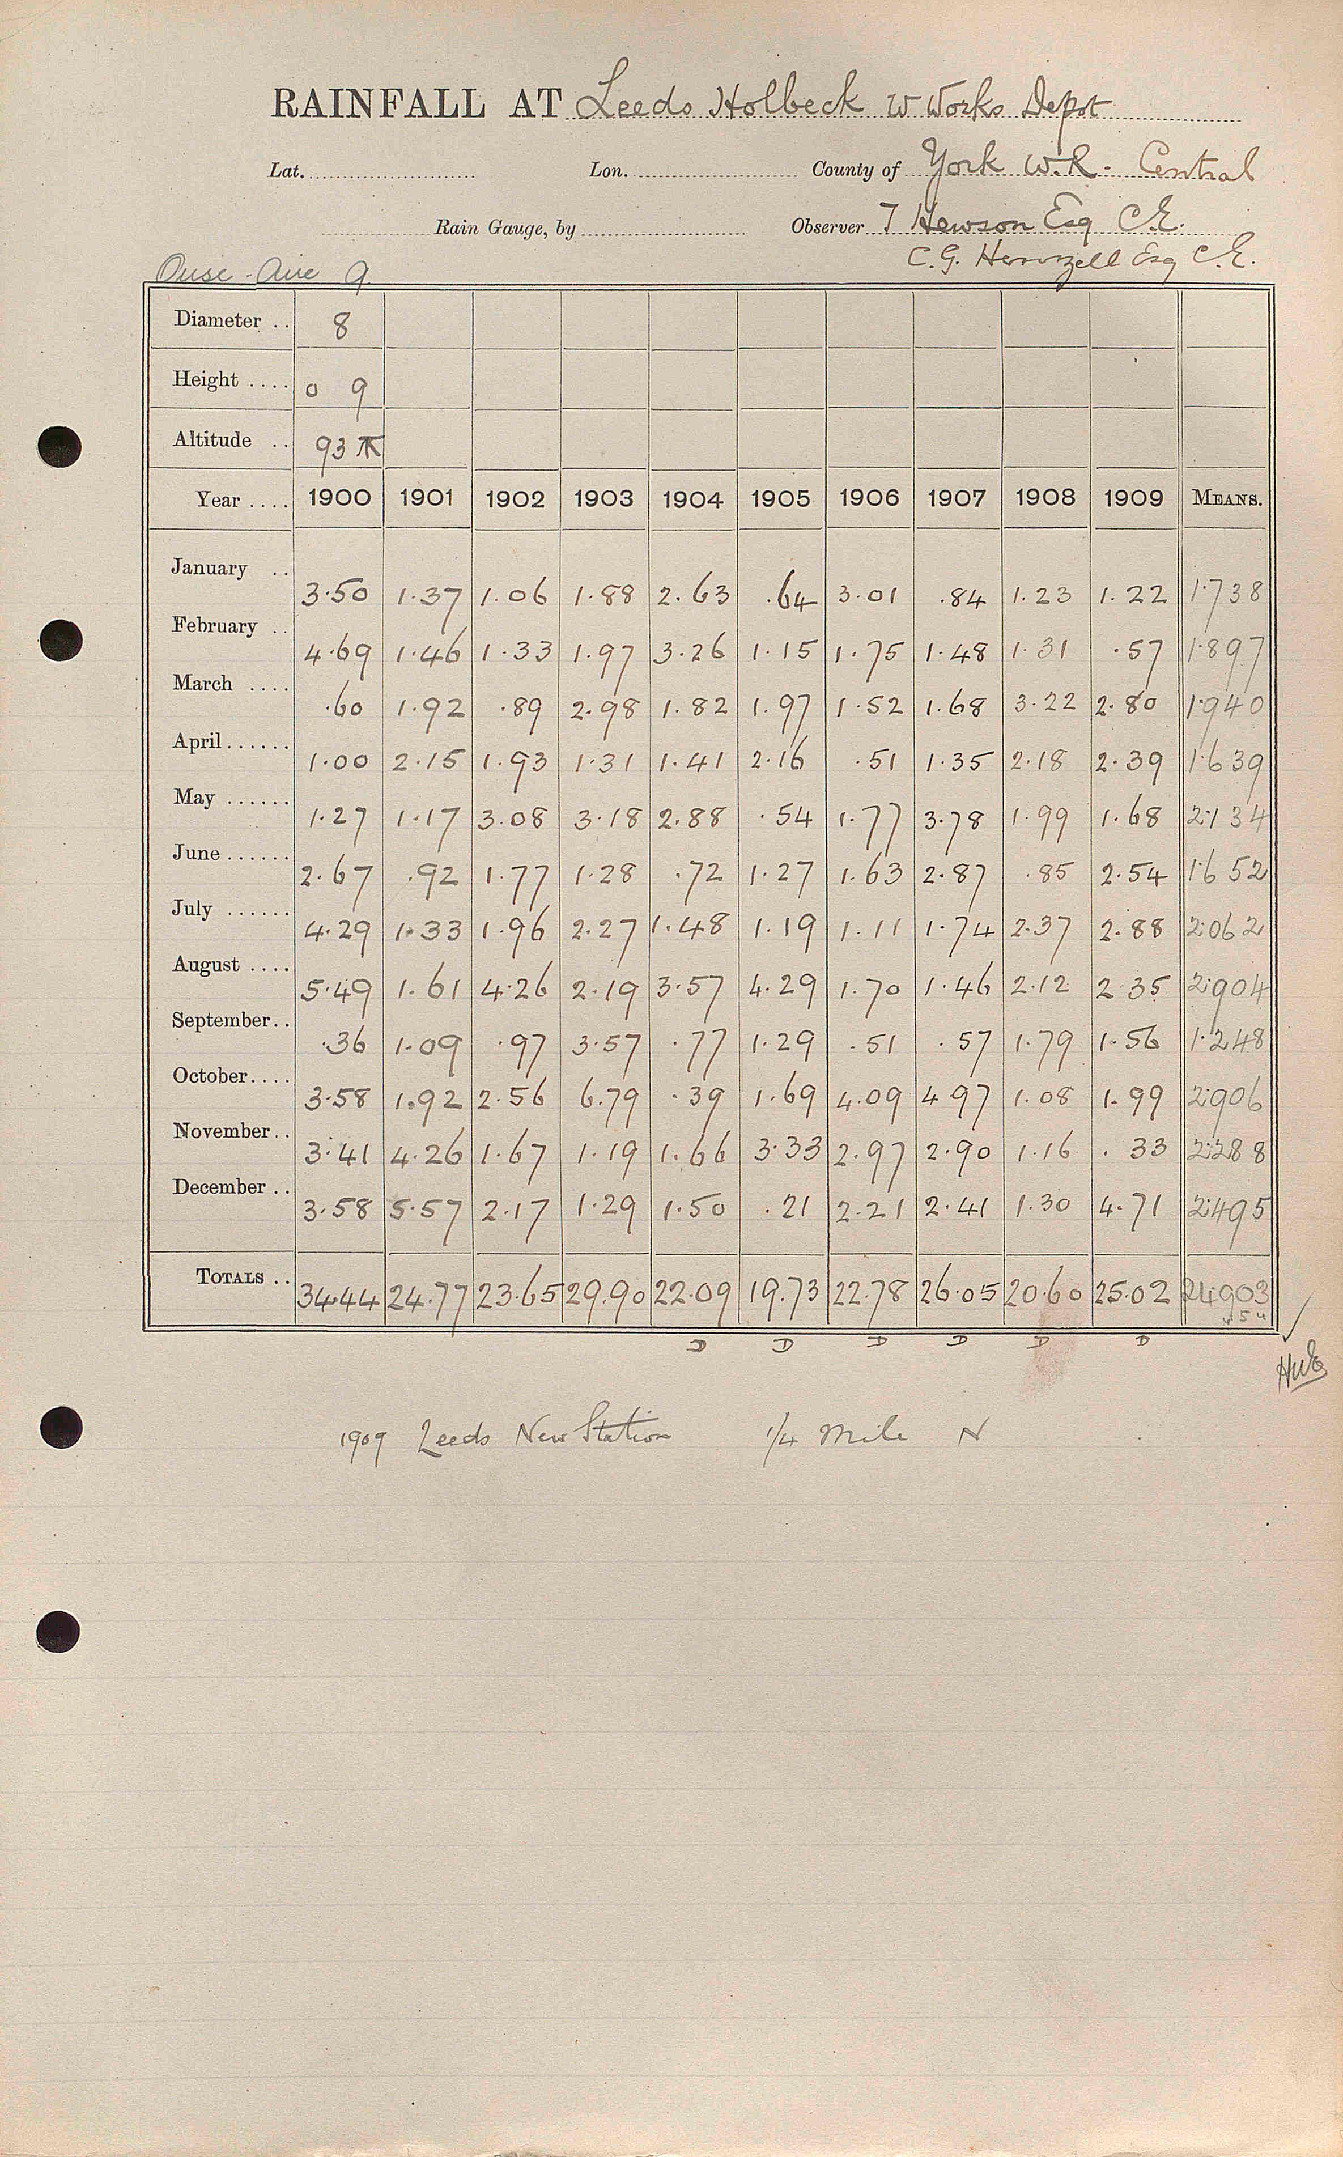 RAINFALL AT Leeds Holbeck W Works Depot
Lat. Lon. County of York W.R. Central
Rain Gauge, by Observer T Hewson Esq C.E.
C.G. Henzell Esq C.E.
Ouse - Aire 9
Diameter .. 8
Height .... 0 9
Altitude .. 93
Year .... 1900 1901 1902 1903 1904 1905 1906 1907 1908 1909 MEANS.
January .. 3.50 1.37 1.06 1.88 2.63 .64 3.01 .84 1.23 1.22 1.738
February .. 4.69 1.46 1.33 1.97 3.26 1.15 1.75 1.48 1.31 .57 1.897
March .... .60 1.92 .89 2.98 1.82 1.97 1.52 1.68 3.22 2.80 1.940
April...... 1.00 2.15 1.93 1.31 1.41 2.16 .51 1.35 2.18 2.39 1.639
May ...... 1.27 1.17 3.08 3.18 2.88 .54 1.77 3.78 1.99 1.68 2.134
June...... 2.67 .92 1.77 1.28 .72 1.27 1.63 2.87 .85 2.54 1.652
July ...... 4.29 1.33 1.96 2.27 1.48 1.19 1.11 1.74 2.37 2.88 2.062
August .... 5.49 1.61 4.26 2.19 3.57 4.29 1.70 1.46 2.12 2.35 2.904
September.. .36 1.09 .97 3.57 .77 1.29 .51 .57 1.79 1.56 1.248
October.... 3.58 1.92 2.56 6.79 .39 1.69 4.09 4.97 1.08 1.99 2.906
November.. 3.41 4.26 1.67 1.19 1.66 3.33 2.97 2.90 1.16 .33 2.288
December .. 3.58 5.57 2.17 1.29 1.50 .21 2.21 2.41 1.30 4.71 2.495
TOTALS .. 34.44 24.77 23.65 29.90 22.09 19.73 22.78 26.05 20.60 25.02 24.903
" 5 "
D D D D D D
1909 Leeds New Station 1/4 Mile N